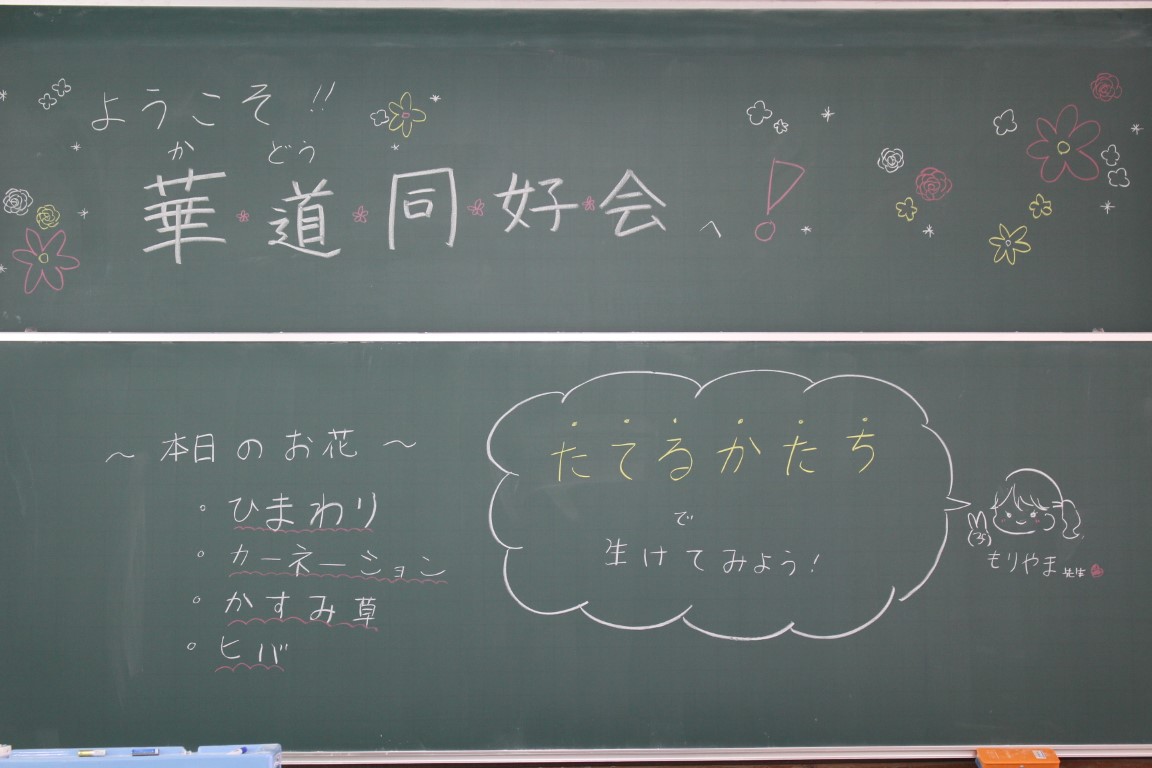 ようこそ!!
か どう
華道同好会へ!
~ 本日のお花 ~
・ひまわり
・カーネーション
・かすみ草
・ヒバ
たてるかたち
で
生けてみよう!
もりやま先生